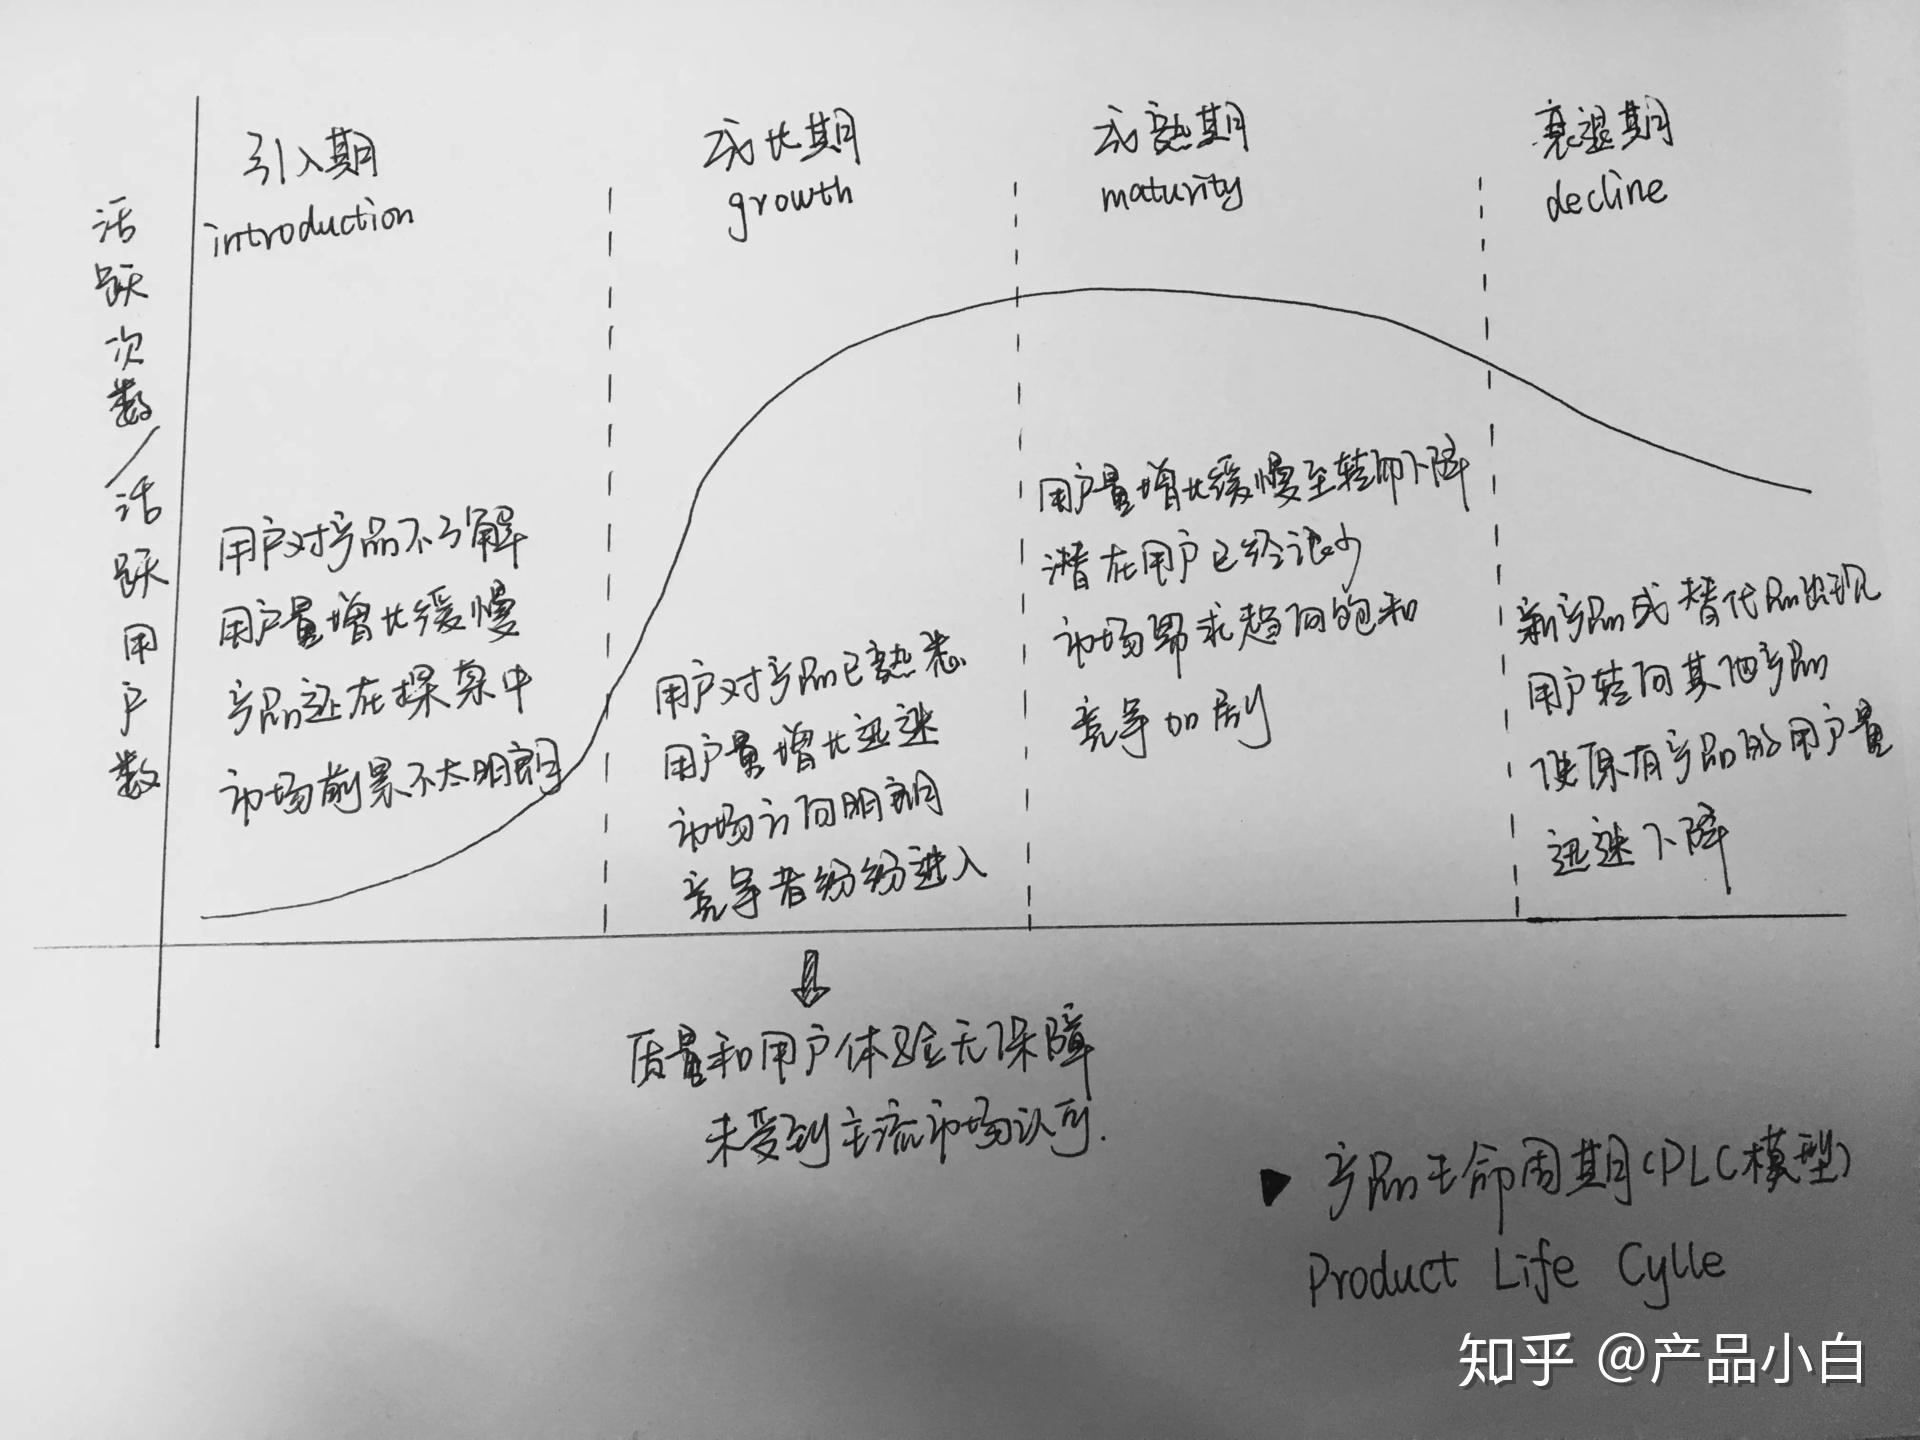 引入期
introduction
成长期
growth
成熟期
maturity
衰退期
decline
活跃次数/活跃用户数
用户对产品不了解
用户量增长缓慢
产品还在探索中
市场前景不太明朗
用户对产品已熟悉
用户量增长迅速
市场方向明朗
竞争者纷纷进入
用户量增长缓慢至转而下降
潜在用户已经很少
市场需求趋向饱和
竞争加剧
新产品或替代品出现
用户转向其他产品
使原有产品的用户量
迅速下降
质量和用户体验无保障
未受到主流市场认可.
产品生命周期(PLC模型)
Product Life Cylle
知乎 @产品小白